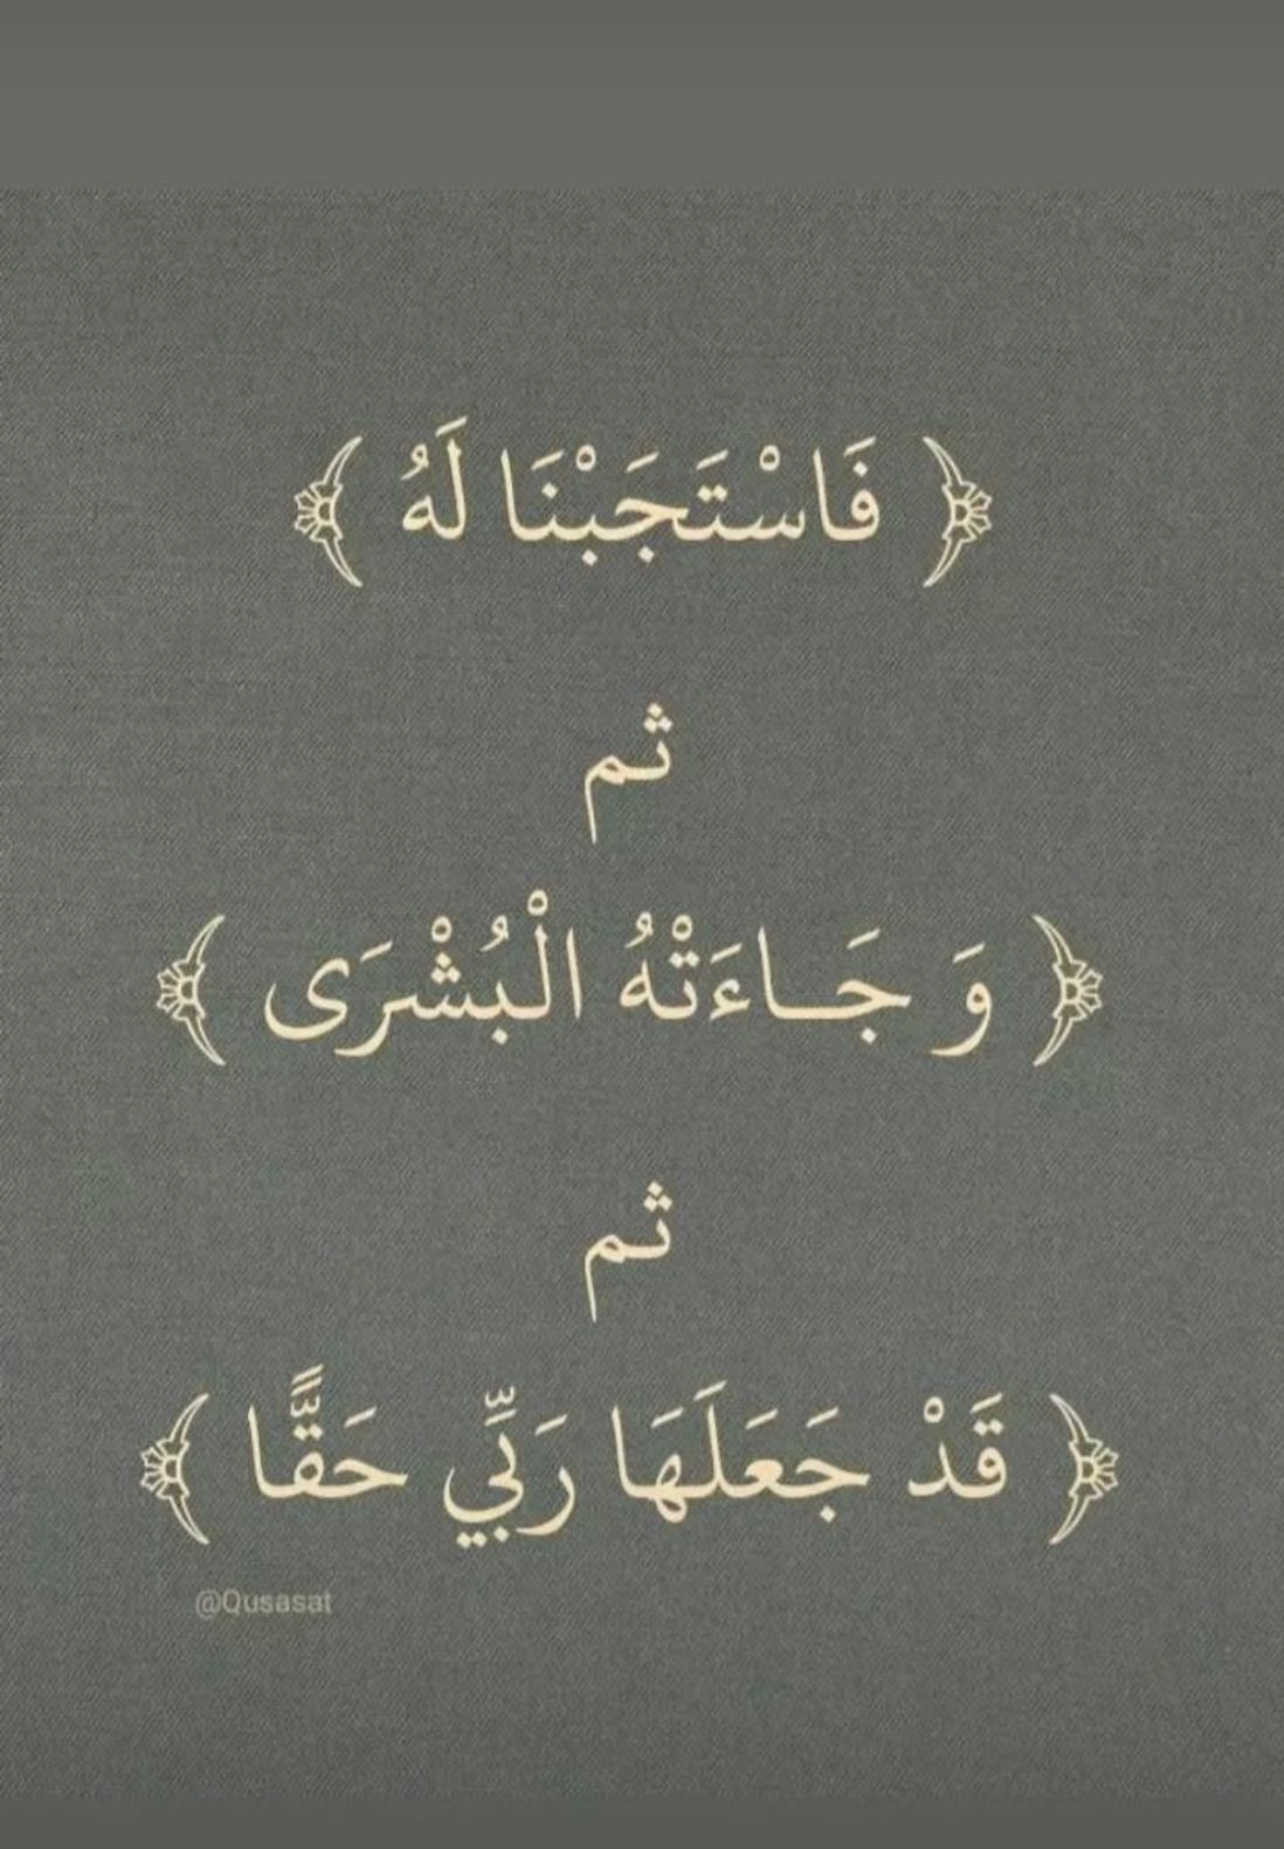 ﴿ فَاسْتَجَبْنَا لَهُ ﴾
ثم
﴿ وَ جَـاءَتْهُ الْبُشْرَى ﴾
ثم
﴿ قَدْ جَعَلَهَا رَبِّي حَقًّا ﴾
@Qusasat